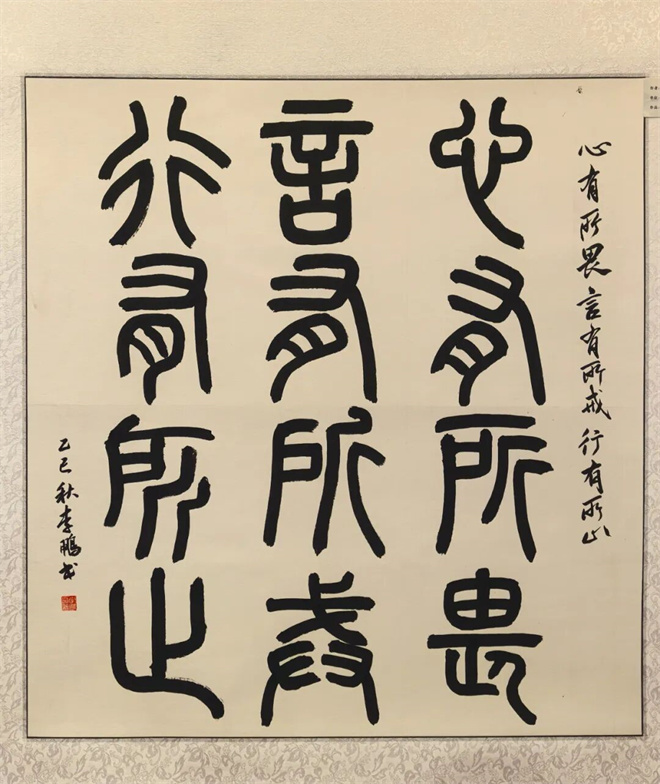 心有所畏言有所戒行有所止
心有所畏
言有所戒
行有所止
乙巳秋李鹏书